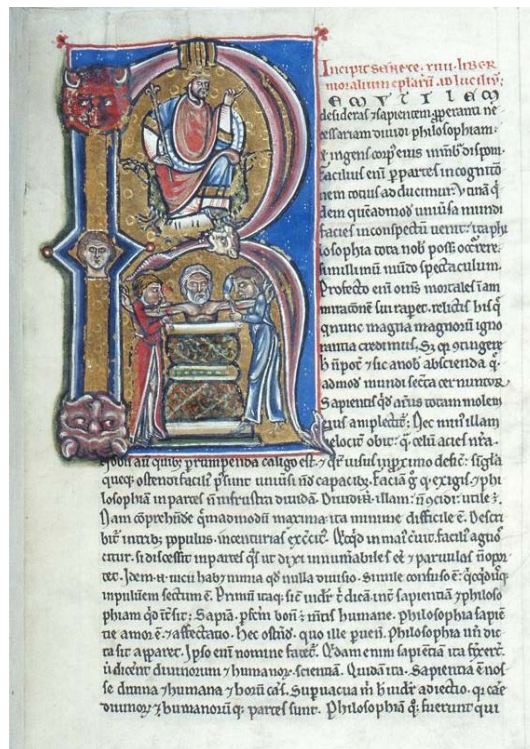 Incipit Senece xiiii liber
moralium eplarū ad luciliū
EM VTILEM
desideras ⁊ sapientem pperanti ne
cessariam diuidi philosophiam:
⁊ ingens corp eius in mēb disponi.
facilius enī p partes in cognitiō
nem totius adducimur. Vtinā q
dem quēadmodū uniūsa mundi
facies in conspectū uenit: ita phi
losophia tota nob posset occrere.
simillimū mūdo spectaculum.
Profecto enī omīs mortales ī am
miratiōnē sui rapet. relictis his q̄
nunc magna magnorū igno
rantia credimus. Sz qꝛ ↄtingere
h̄ nō pōt ⁊ sic
admodū mundi secreta cernuntur
Sapientis qd anīus totam molem
eius amplectit̄: Nec minꝰ illam
uelociter obit: q̄ celū acies nrā.
Nobis aū quibꝫ prumpenda caligo est. ⁊ q̄ꝝ uisus in pximo deficit: singla
queqꝫ ostendi facilꝰ possunt uniūsi nōd capacibꝫ. Faciā ḡ q exigis ⁊ phi
losophiā in partes nō in frustra diuidā. Diuidi ēī illam: nō ↄcidi: utile ē.
Nam cōprehēde q̄madmodū maxima ita minime difficile ē. Descri
bit̄ in tribꝫ populus. in centurias exercitꝰ. Qicqd in maiꝰ creuit. facilꝰ agno
citur. si discessit in partes qꝫ ut dixi innumabiles eē ⁊ paruulas nō opor
tet. Idem eī uicii habꝫ nimia qd nulla diuisio. Simile confuso ē: qcqd usqꝫ
in puluerem sectum ē. Primū itaqꝫ si ē uidr̄ t dicā int̄ sapientiā ⁊ philoso
phiam qd int̄sit: Sapiā. pfcm bonū ē mtis humane. Philosophia sapiē
tie amor ē ⁊ affectatio. Hec ostēd. quo illa puen̄. Philosophia uñ dic
ta sit apparet. Ipso enī nomine fatet̄. Qdam enim sapientiā ita
ut dicent diuinorum ⁊ humanoꝝ scientiā. Quidā ita. Sapientia ē nos
se diuina ⁊ humana ⁊ horū cās. Supuacua m̄ h̄ uidr̄ adiectio. qꝛ cāe
diuinoꝝ ⁊ humanorū qꝫ partes sunt. Philosophiā q̄ꝫ fuerunt qui